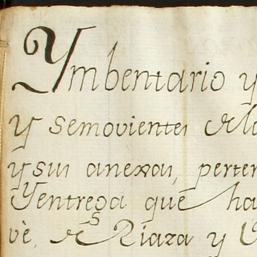 Ymbentario y
y semovientes de lo
y sus anexas, perten
Yentrega que ha
vè, de Riaza y